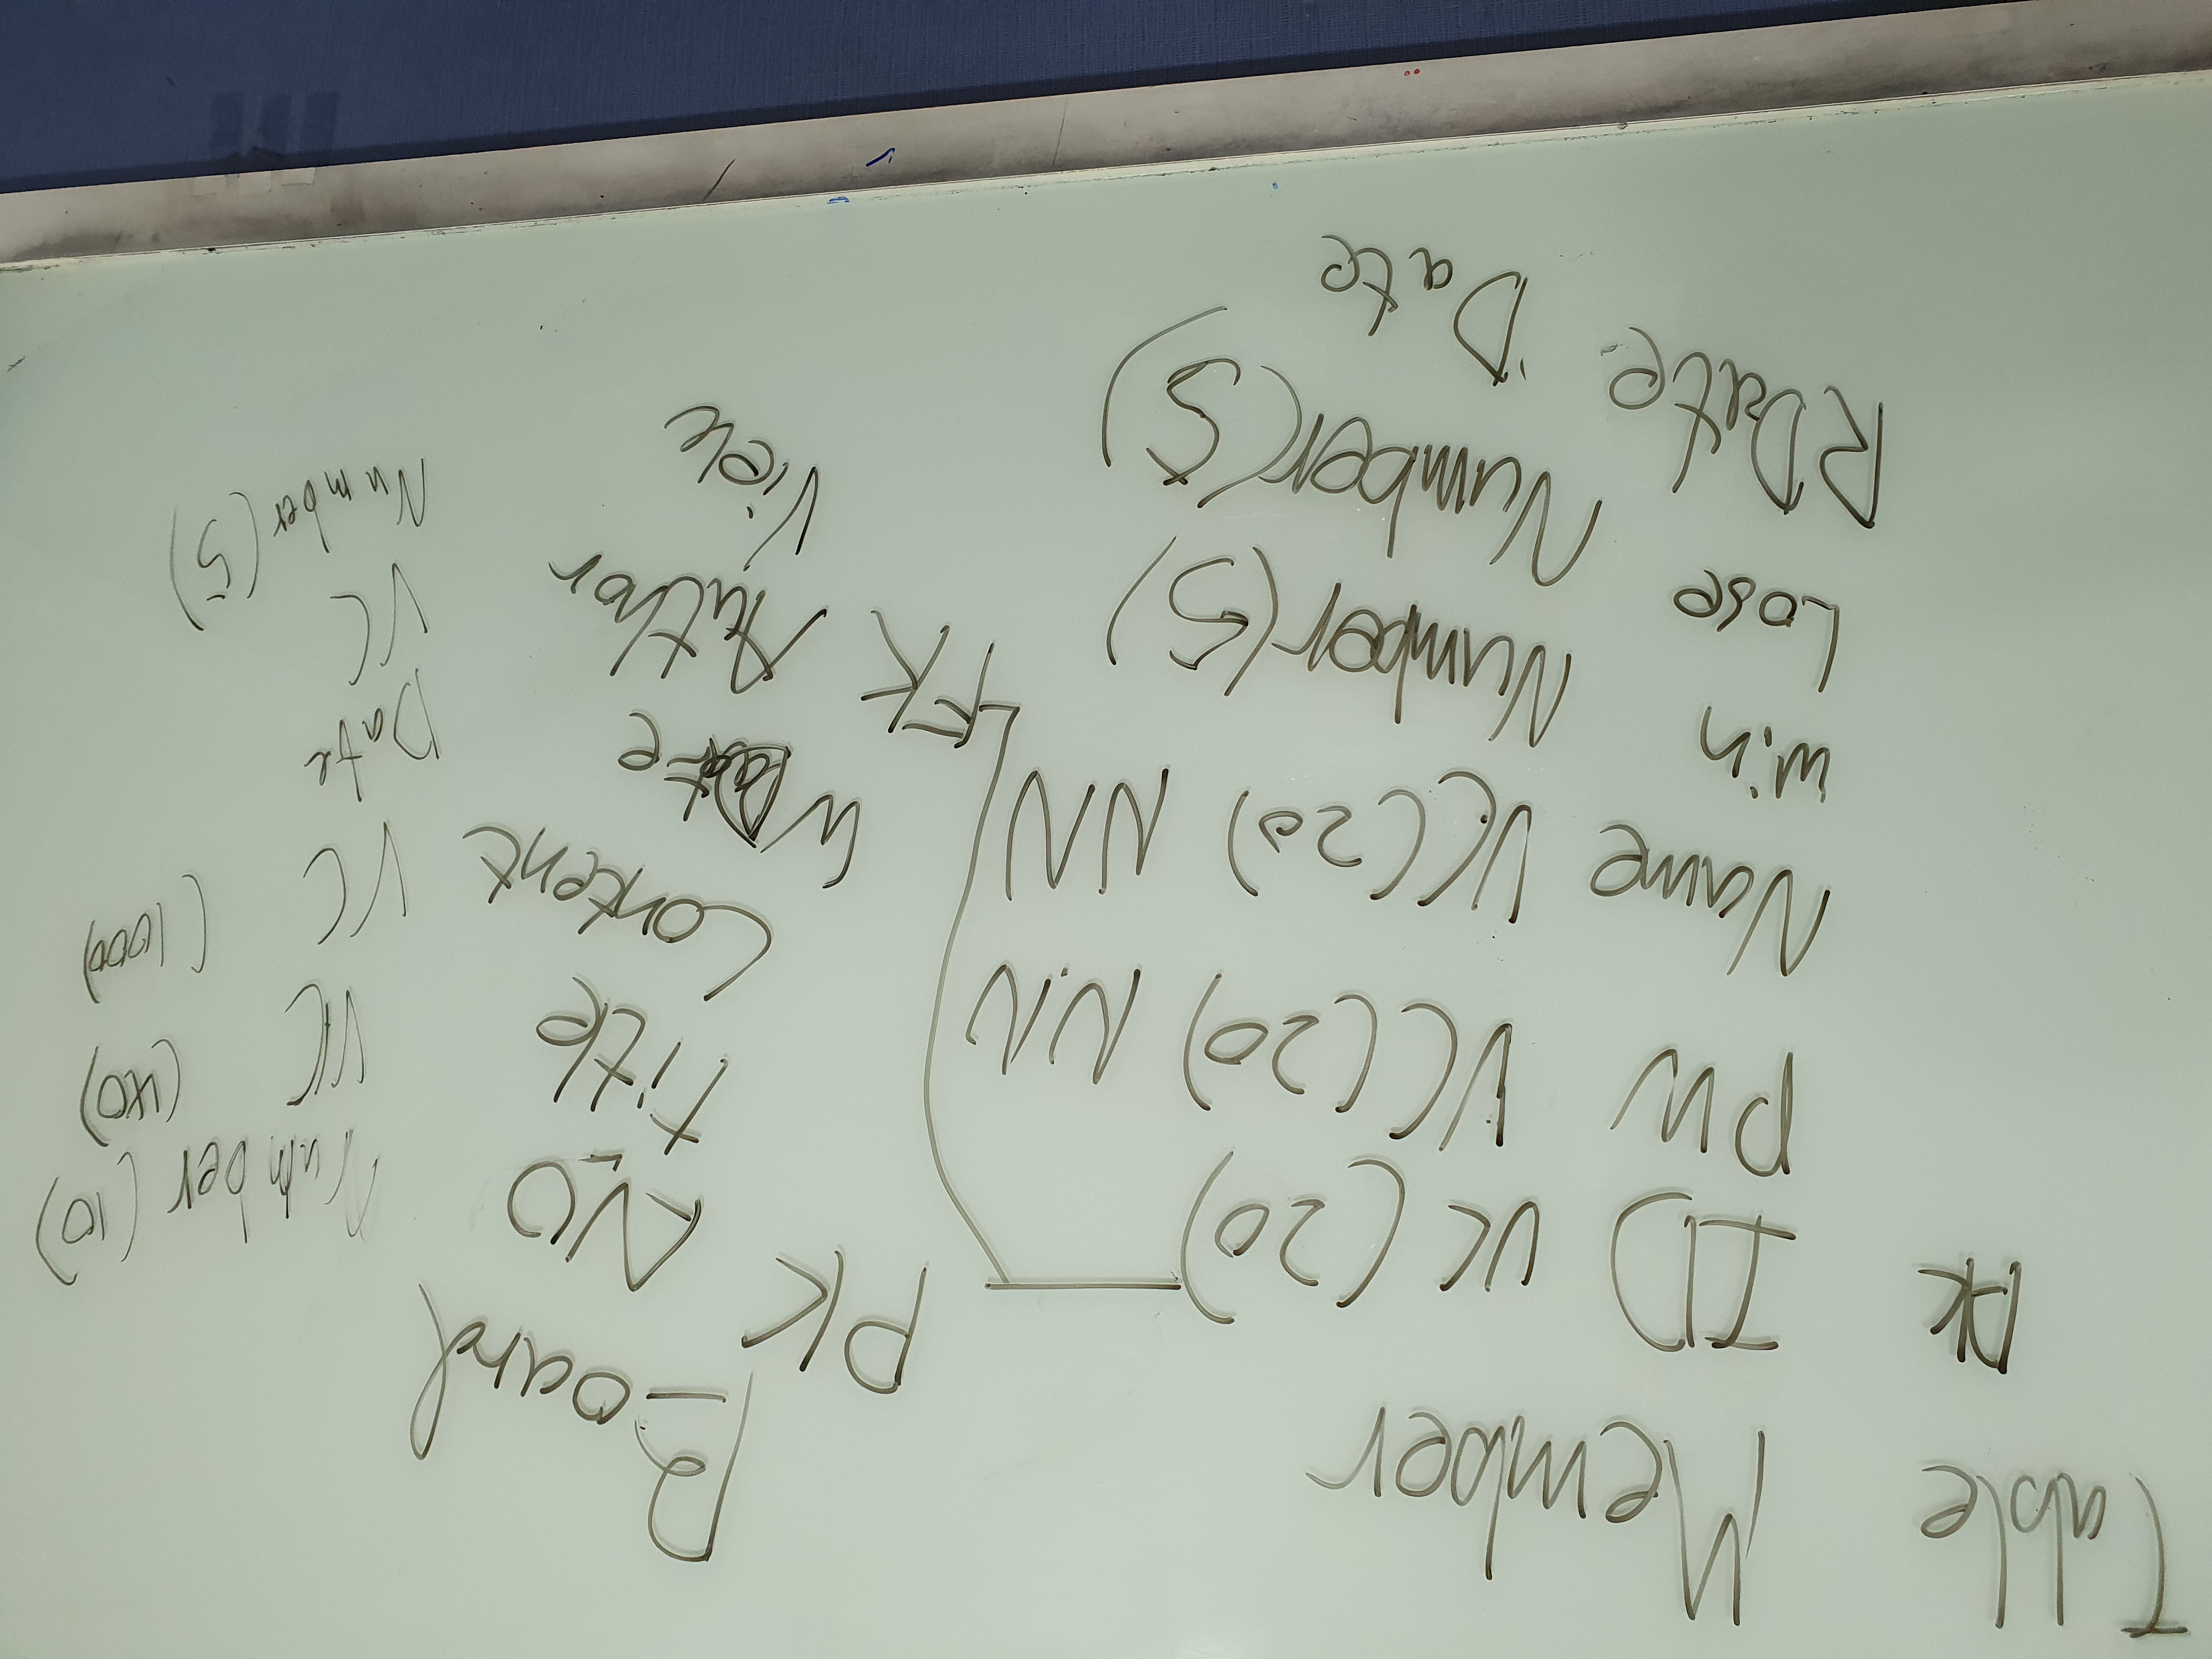 Table Member
PK ID VC (20)
PW VC (20) N.N
Name VC (20) NN
win Number (5)
Lose Number (5)
RDate Date
Board
PK NO Number (10)
Title VC (40)
Content VC (1000)
WDate Date
FK Author VC
View Number (5)